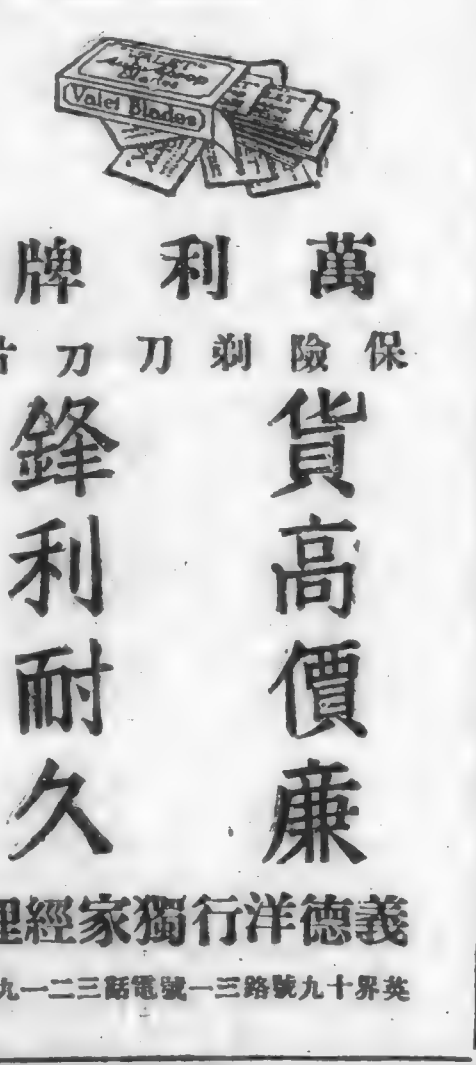 "VALET"
Auto-Strop
Blades
Valet Blades
萬利牌
保險剃刀刀片
貨高價廉
鋒利耐久
義德洋行獨家經理
英界十九號路三一號電話三二一九